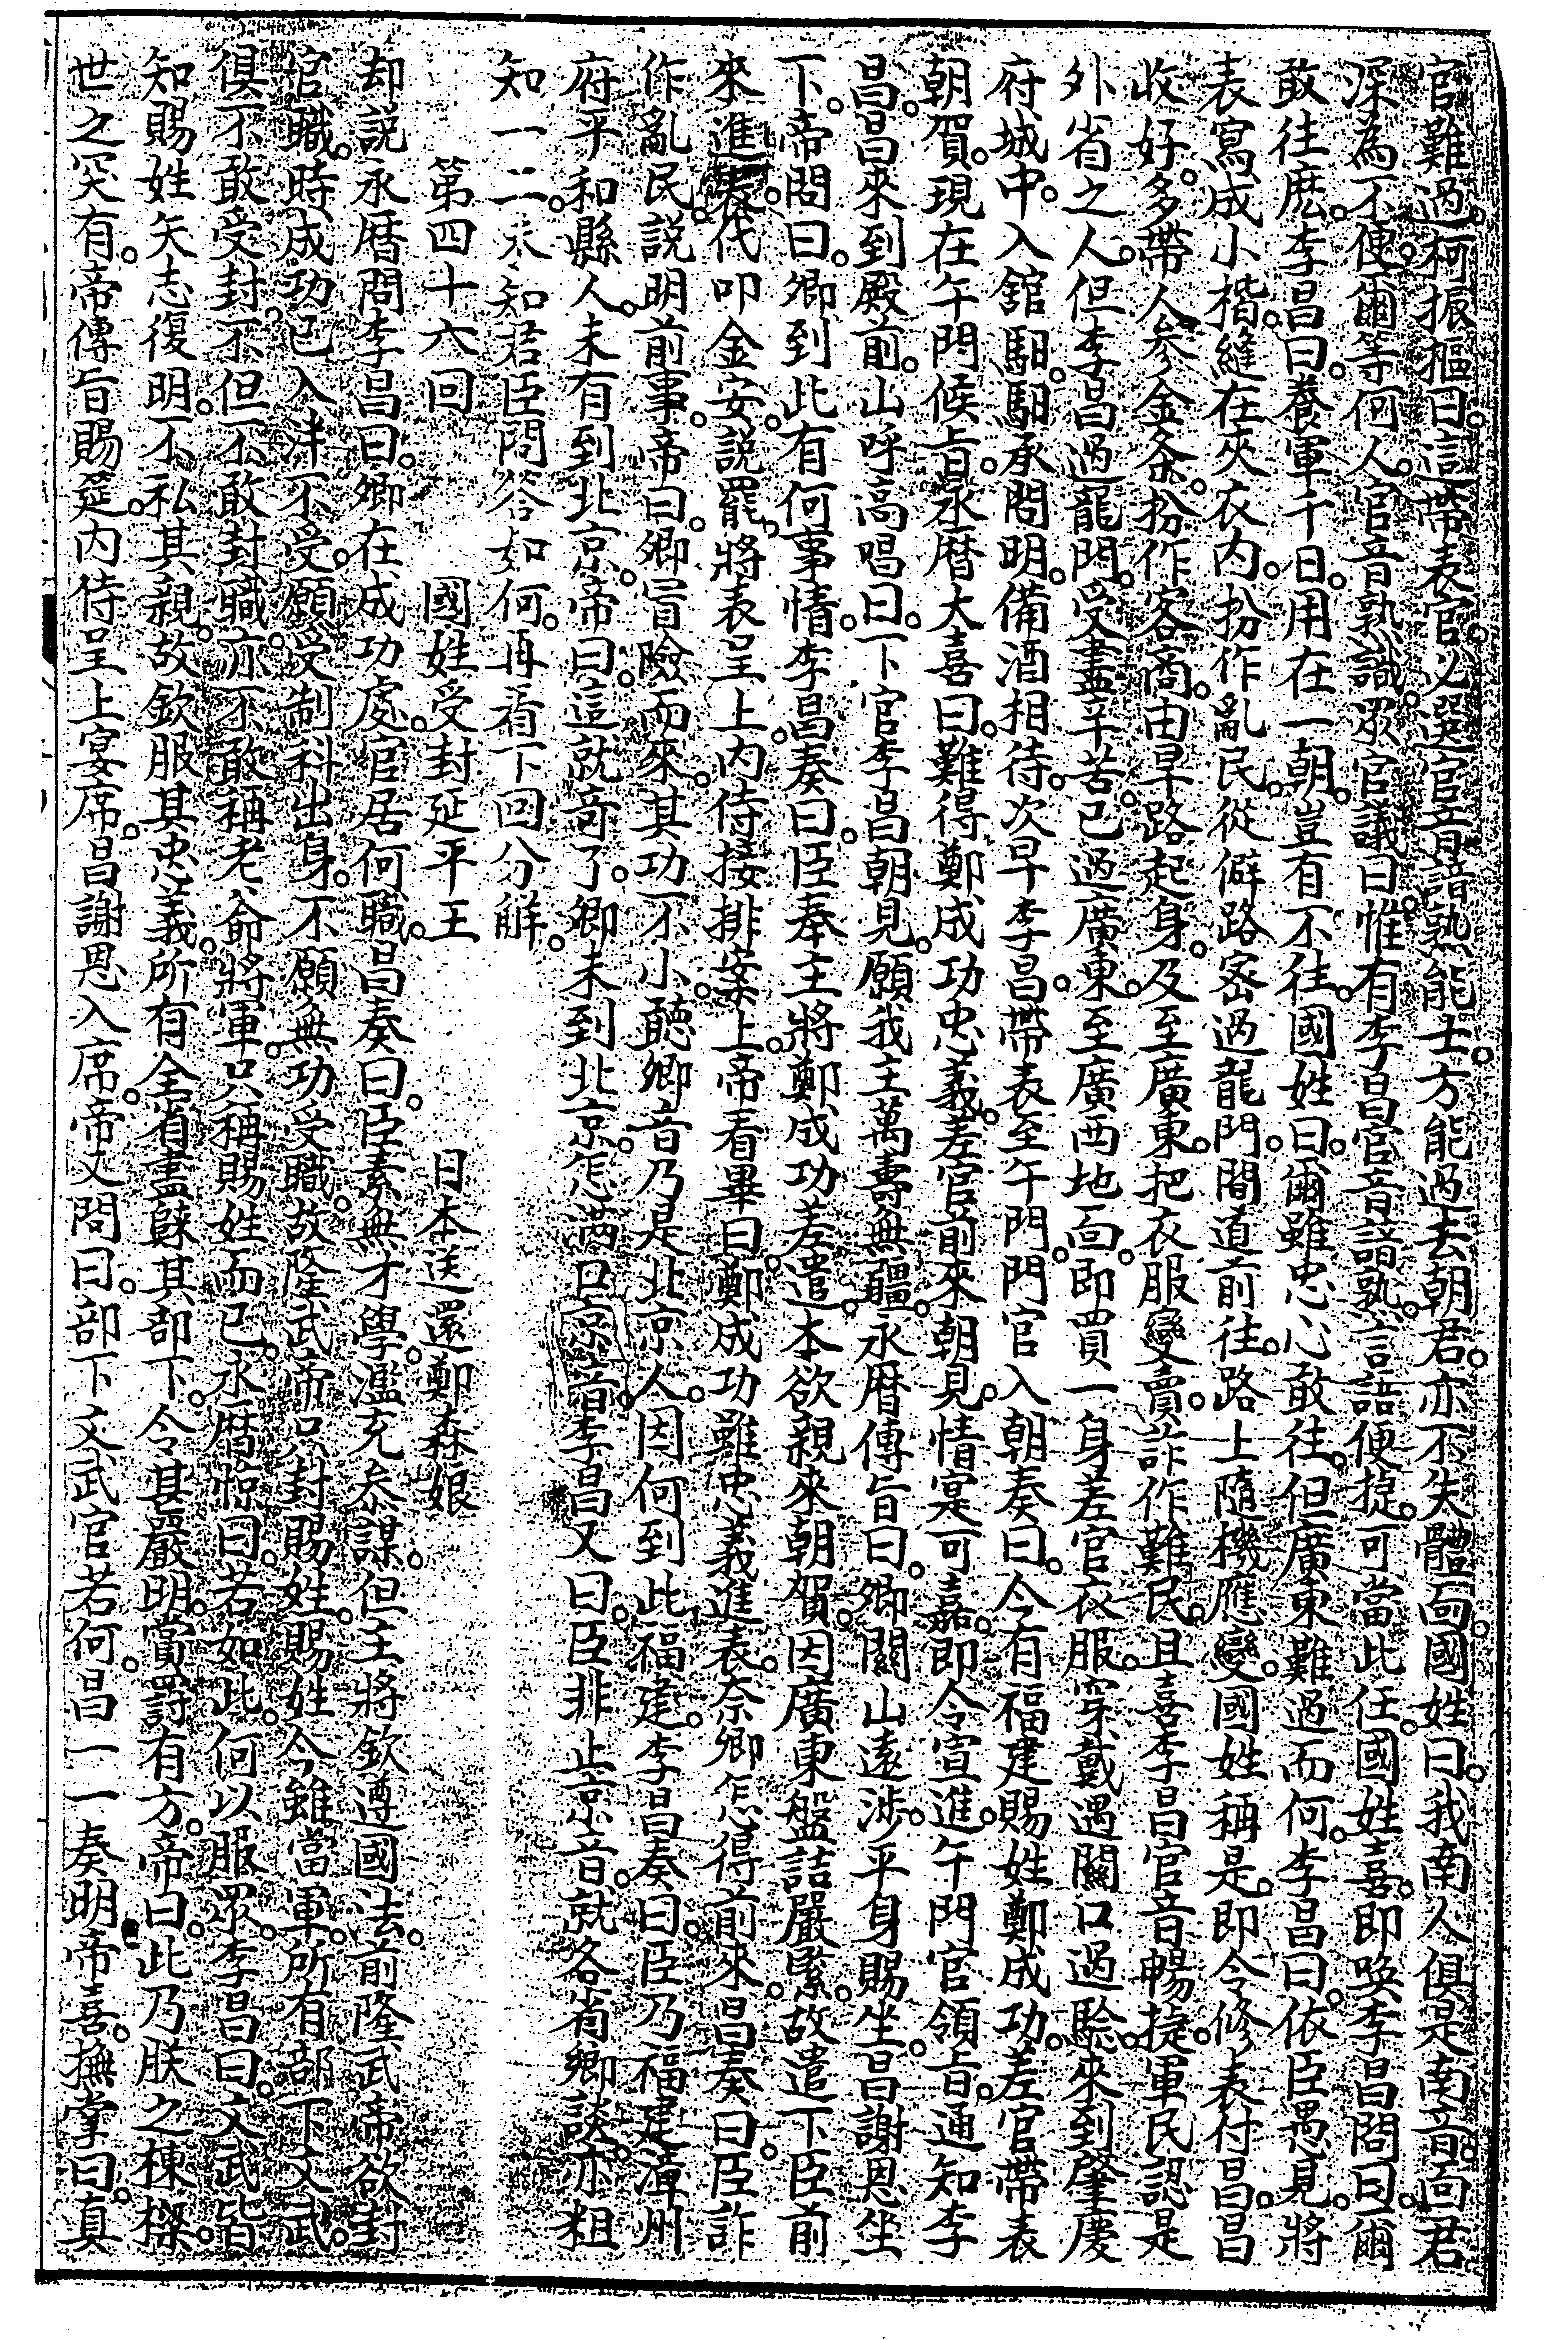 官難過柯振摳曰這帶表官必選官音諳熟能士方能過去朝君亦不失體面國姓曰我南人俱是南音面君
深為不便爾等何人官音熟識眾官議曰惟有李昌官音諳熟言語便捷可當此任國姓喜即喚李昌問曰爾
敢往庅李昌曰養軍千日用在一朝豈有不往國姓曰爾雖忠心敢往但廣東難過而何李昌曰依臣愚見將
表寫成小楷縫在夾衣內扮作亂民從僻路密過龍門間道前往路上隨機應變國姓稱是即令修表付昌昌
收好多帶人參金条扮作客商由旱路起身及至廣東把衣服變賣詐作難民且喜李昌官音暢捷軍民認是
外省之人但李昌過龍門受盡辛苦已過廣東至廣西地面即買一身差官衣服穿戴遇關口過驗來到肇慶
府城中入舘馹馹承問明備酒相待次早李昌帶表至午門門官入朝奏曰今有福建賜姓鄭成功差官帶表
朝賀現在午門候旨永曆大喜曰難得鄭成功忠義差官前來朝見情寔可嘉即令宣進午門官領旨通知李
昌昌來到殿前山呼高唱曰下官李昌朝見願我主萬壽無疆永曆傳旨曰卿關山遠涉平身賜坐昌謝恩坐
下帝問曰卿到此有何事情李昌奏曰臣奉主將鄭成功差遣本欲親來朝賀因廣東盤詰嚴緊故遣下臣前
來進表代叩金安說罷將表呈上內侍接排案上帝看畢曰鄭成功雖忠義進表奈卿怎得前來昌奏曰臣詐
作亂民說明前事帝曰卿冒險而來其功不小聽卿音乃是北京人因何到此福建李昌奏曰臣乃福建漳州
府平和縣人未有到北京帝曰這就奇了卿未到北京怎滿口京音李昌又曰臣非止京音就各省卿談亦粗
知一二未知君臣問答如何再看下回分觧
第四十六回 國姓受封延平王 日本送還鄭森娘
却說永曆問李昌曰卿在成功處官居何職昌奏曰臣素無才學濫充參謀但主將欽遵國法前隆武帝欲封
官職時成功已入泮不受願受制科出身不願無功受職故隆武帝只封賜姓賜姓今雖當軍所有部下文武
俱不敢受封不但不敢封職亦不敢稱老爺將軍只稱賜姓而已永曆惊曰若如此何以服眾李昌曰文武皆
知賜姓矢志復明不私其親故欽服其忠義所有全省盡隸其部下令甚嚴明賞罸有方帝曰此乃朕之棟樑
世之罕有帝傳旨賜筵內侍呈上宴席昌謝恩入席帝又問曰部下文武官若何昌一一奏明帝喜撫掌曰真